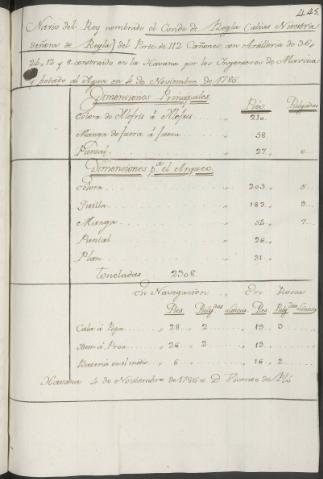 445
Navio del Rey nombrado el Conde de Regla (alias) Nuestra
Señora de Regla, del Porte de 112 Cañones con Artilleria de 36,
24, 12 y 8 construido en la Havana por los Ingenieros de Marina
y botado al Agua en 4 de Noviembre de 1786
Dimensiones Principales Pies Pulgadas
Eslora de Alefris á Alefris 210
Manga de fuera á fuera 58
Puntal 27
Dimensiones pa. el Arqueo
Eslora 203 5
Quilla 183 3
Manga 56 7
Puntal 26
Plan 31
Toneladas 2308
En Navegacion En Rosca
Pies Pulgdas Lineas Pies Pulgdas Lineas
Cala á Popa 28 2 19 3
Idem á Proa 26 2 13
Bateria en el medio 6 16 2
Havana 4 de Noviembre de 1786 = D